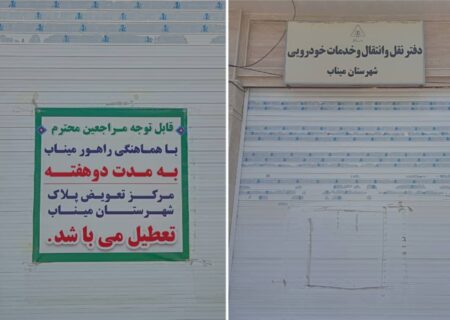 قابل توجه مراجعین محترم
با هماهنگی راهور میناب
به مدت دوهفته
مرکز تعویض پلاک
شهرستان میناب
تعطیل می با شد.
دفتر نقل وانتقال وخدمات خودرویی
شهرستان میناب